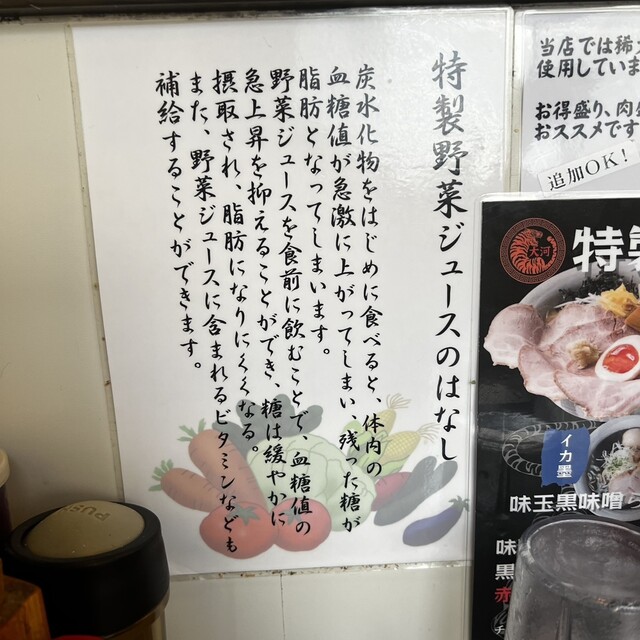 特製野菜ジュースのはなし
炭水化物をはじめに食べると、体内の
血糖値が急激に上がってしまい、残った糖が
脂肪となってしまいます。
野菜ジュースを食前に飲むことで、血糖値の
急上昇を抑えることができ、糖は緩やかに
摂取され、脂肪になりにくくなる。
また、野菜ジュースに含まれるビタミンなども
補給することができます。
当店では稀
使用していま
お得盛り、肉
おススメです
追加OK!
大河
特製
イカ墨
味玉黒味噌
味
黒
赤
チ
PUSH